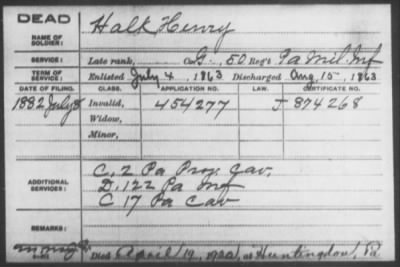 DEAD
NAME OF SOLDIER: Halk Henry
SERVICE: Late rank, Co. G, 50 Reg't Pa Mil. Inf
TERM OF SERVICE: Enlisted July 4, 1863 Discharged Aug, 15, 1863
DATE OF FILING. CLASS. APPLICATION NO. LAW. CERTIFICATE NO.
1882 July 8 Invalid, 454277 J 874268
Widow,
Minor,
ADDITIONAL SERVICES: C. 2 Pa Prov. Cav.
D. 122 Pa Inf
C 17 Pa Cav
REMARKS:
Died April 19, at Huntingdon, Pa.